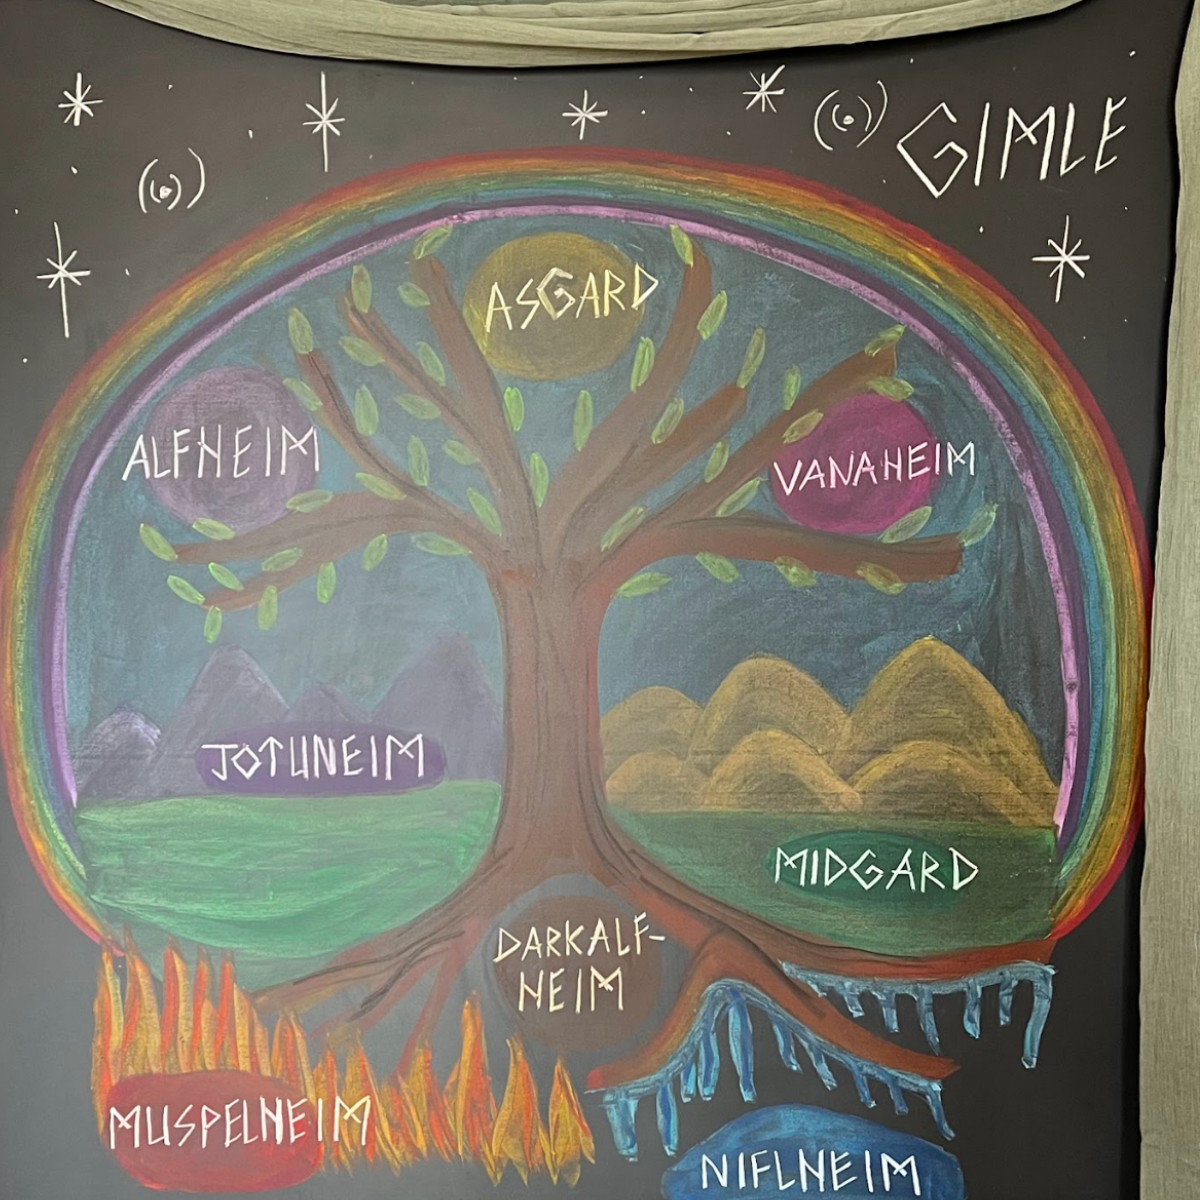 GIMLE
ASGARD
ALFHEIM
VANAHEIM
JOTUNEIM
MIDGARD
DARKALF-
HEIM
MUSPELHEIM
NIFLHEIM